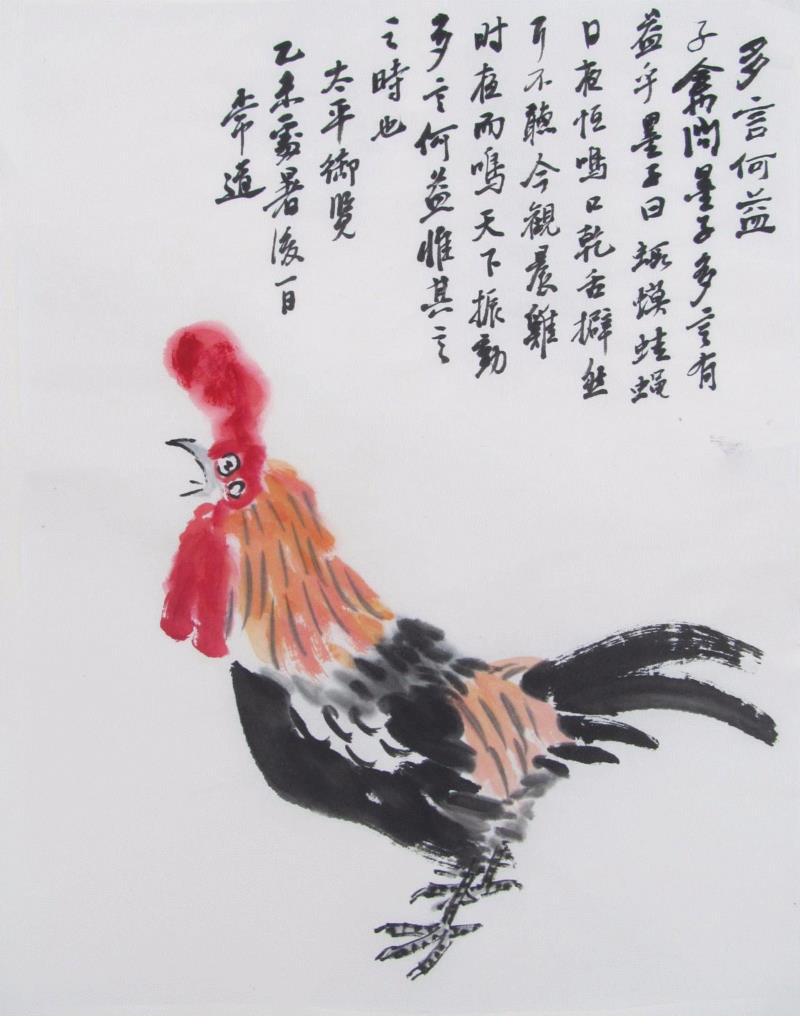 多言何益
子禽問墨子多言有
益乎墨子曰蝦蟆蛙蝇
日夜恒鳴口乾舌擗然
而不聽今觀晨雞
时夜而鳴天下振動
多言何益惟其言
之時也
太平御覽
乙未處暑後一日
常道